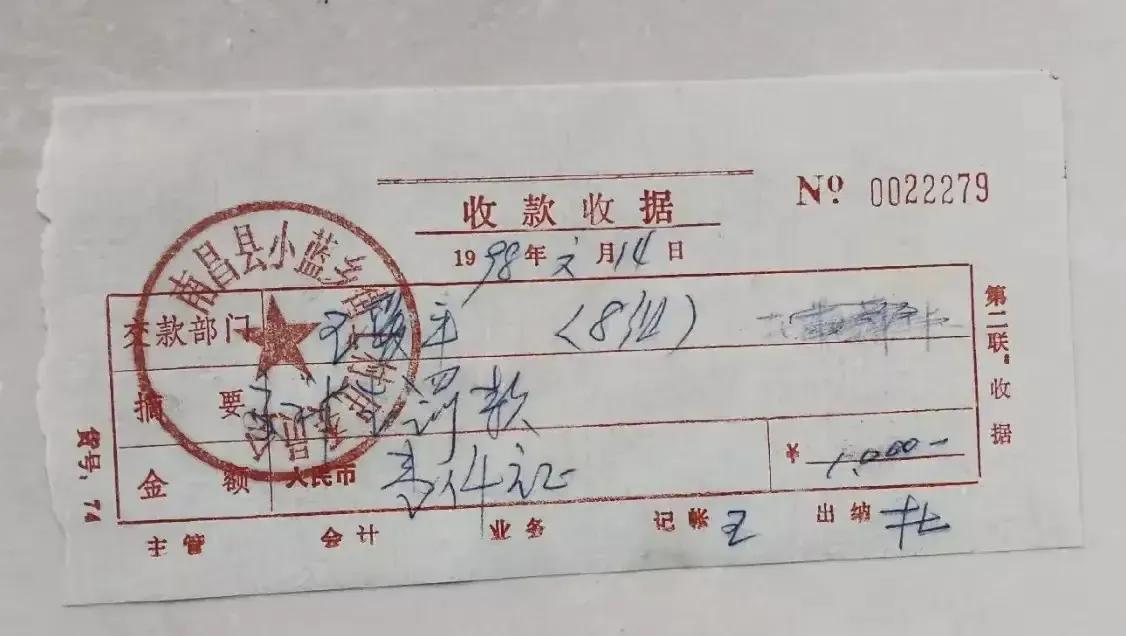 收款收据
No 0022279
1998年元月14日
南昌县小蓝乡
交款部门 王 (8组)
摘要 罚款
金额 人民币 壹仟元正 ¥ 1,000-
主管 会计 业务 记帐 王 出纳
第二联:收据
货号:74